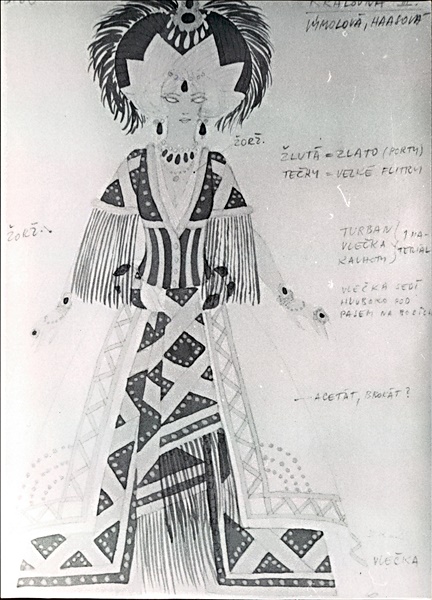 KRÁLOVNA II.
VÝMOLOVÁ, HAASOVÁ
ŽORŽ.
ŽLUTÁ = ZLATO (PORTY)
TEČKY = VELKÉ FLITRY
ŽORŽ.
TURBAN
VLEČKA
KALHOTY
1 MATERIÁL
VLEČKA SEDÍ
HLUBOKO POD
PASEM NA BOCÍCH
ACETÁT, BROKÁT?
VLEČKA